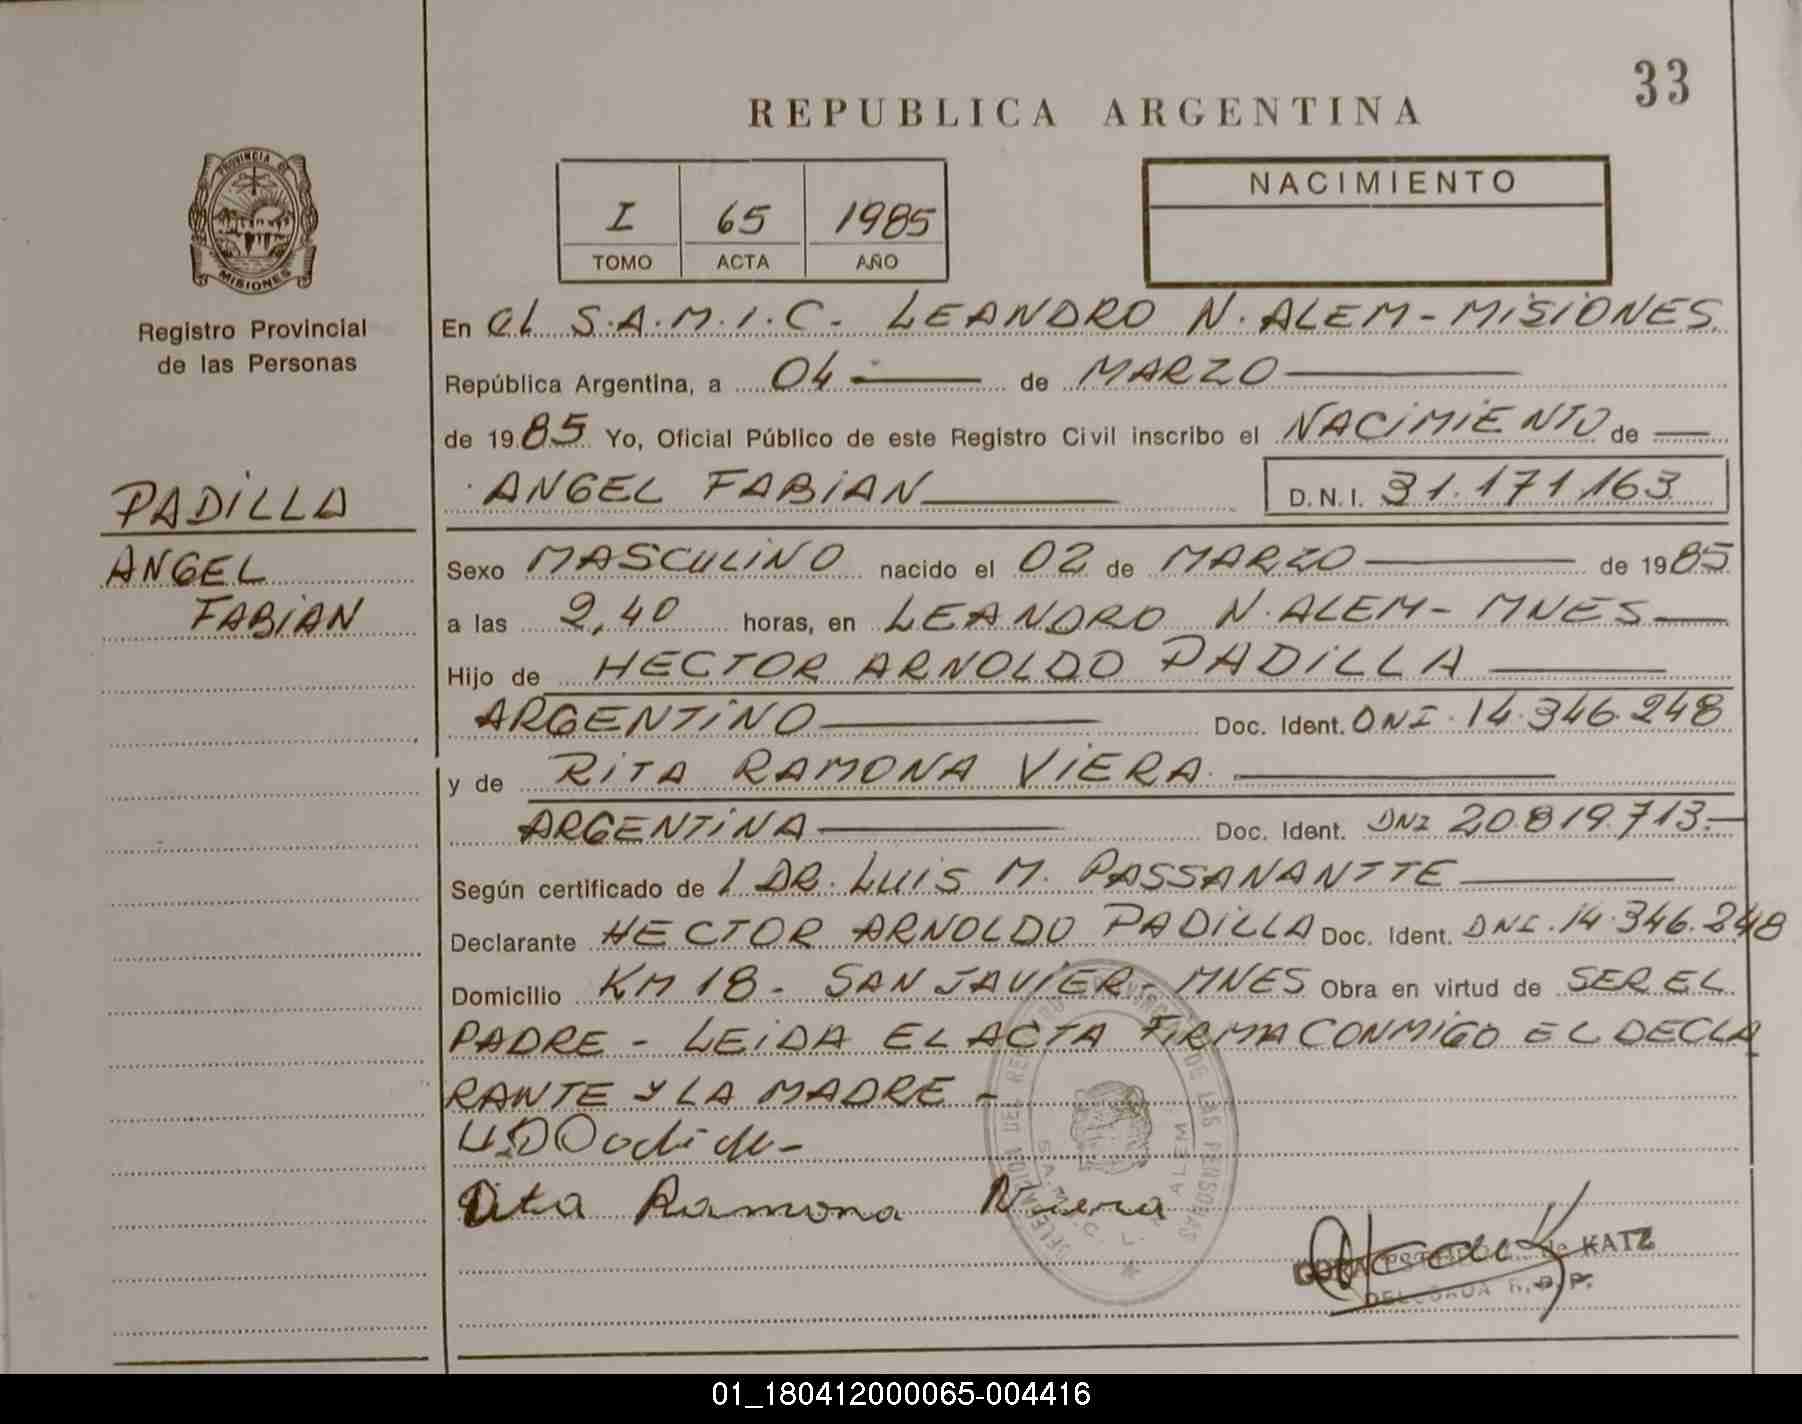 33
REPUBLICA ARGENTINA
PROVINCIA DE
MISIONES
Registro Provincial
de las Personas
I 65 1985
TOMO ACTA AÑO
NACIMIENTO
En el S.A.M.I.C. - LEANDRO N. ALEM - MISIONES
República Argentina, a 04 de MARZO
de 1985 Yo, Oficial Público de este Registro Civil inscribo el NACIMIENTO de
ANGEL FABIAN D.N.I. 31.171.163
PADILLA
ANGEL
FABIAN
Sexo MASCULINO nacido el 02 de MARZO de 1985
a las 2,40 horas, en LEANDRO N. ALEM - MNES
Hijo de HECTOR ARNOLDO PADILLA
ARGENTINO Doc. Ident. DNI. 14.346.248
y de RITA RAMONA VIERA
ARGENTINA Doc. Ident. DNI 20.819.713.-
Según certificado de l DR. LUIS M. PASSANANTTE
Declarante HECTOR ARNOLDO PADILLA Doc. Ident. DNI. 14.346.248
Domicilio KM 18 - SAN JAVIER - MNES Obra en virtud de SER EL
PADRE - LEIDA EL ACTA FIRMA CONMIGO EL DECLA
RANTE Y LA MADRE -
Rita Ramona Viera
DE LAS PERSONAS
S.A.M.I.C. L. N. ALEM
de KATZ
DELEGADA R.P.P.
01_180412000065-004416